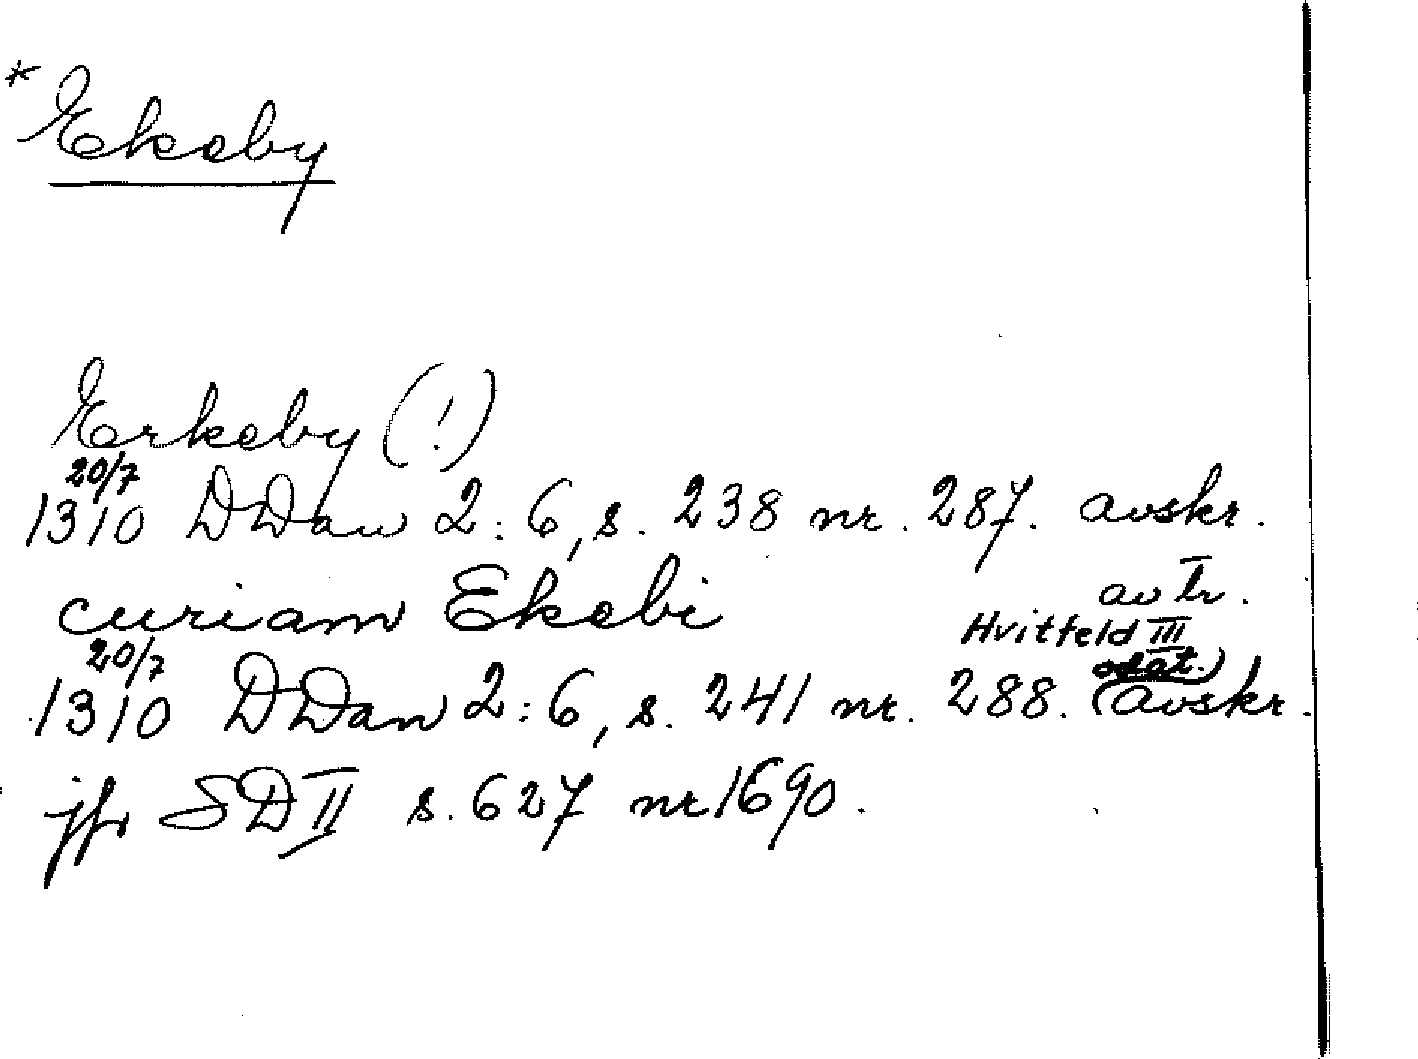 * Ekeby
Erkeby (!)
20/7
1310 DDan 2:6, s. 238 nr. 287. avskr.
av tr.
Hvitfeld III
curiam Ekebi
20/7
1310 DDan 2:6, s. 241 nr. 288. (odat.) avskr.
jfr SD II s. 627 nr 1690.